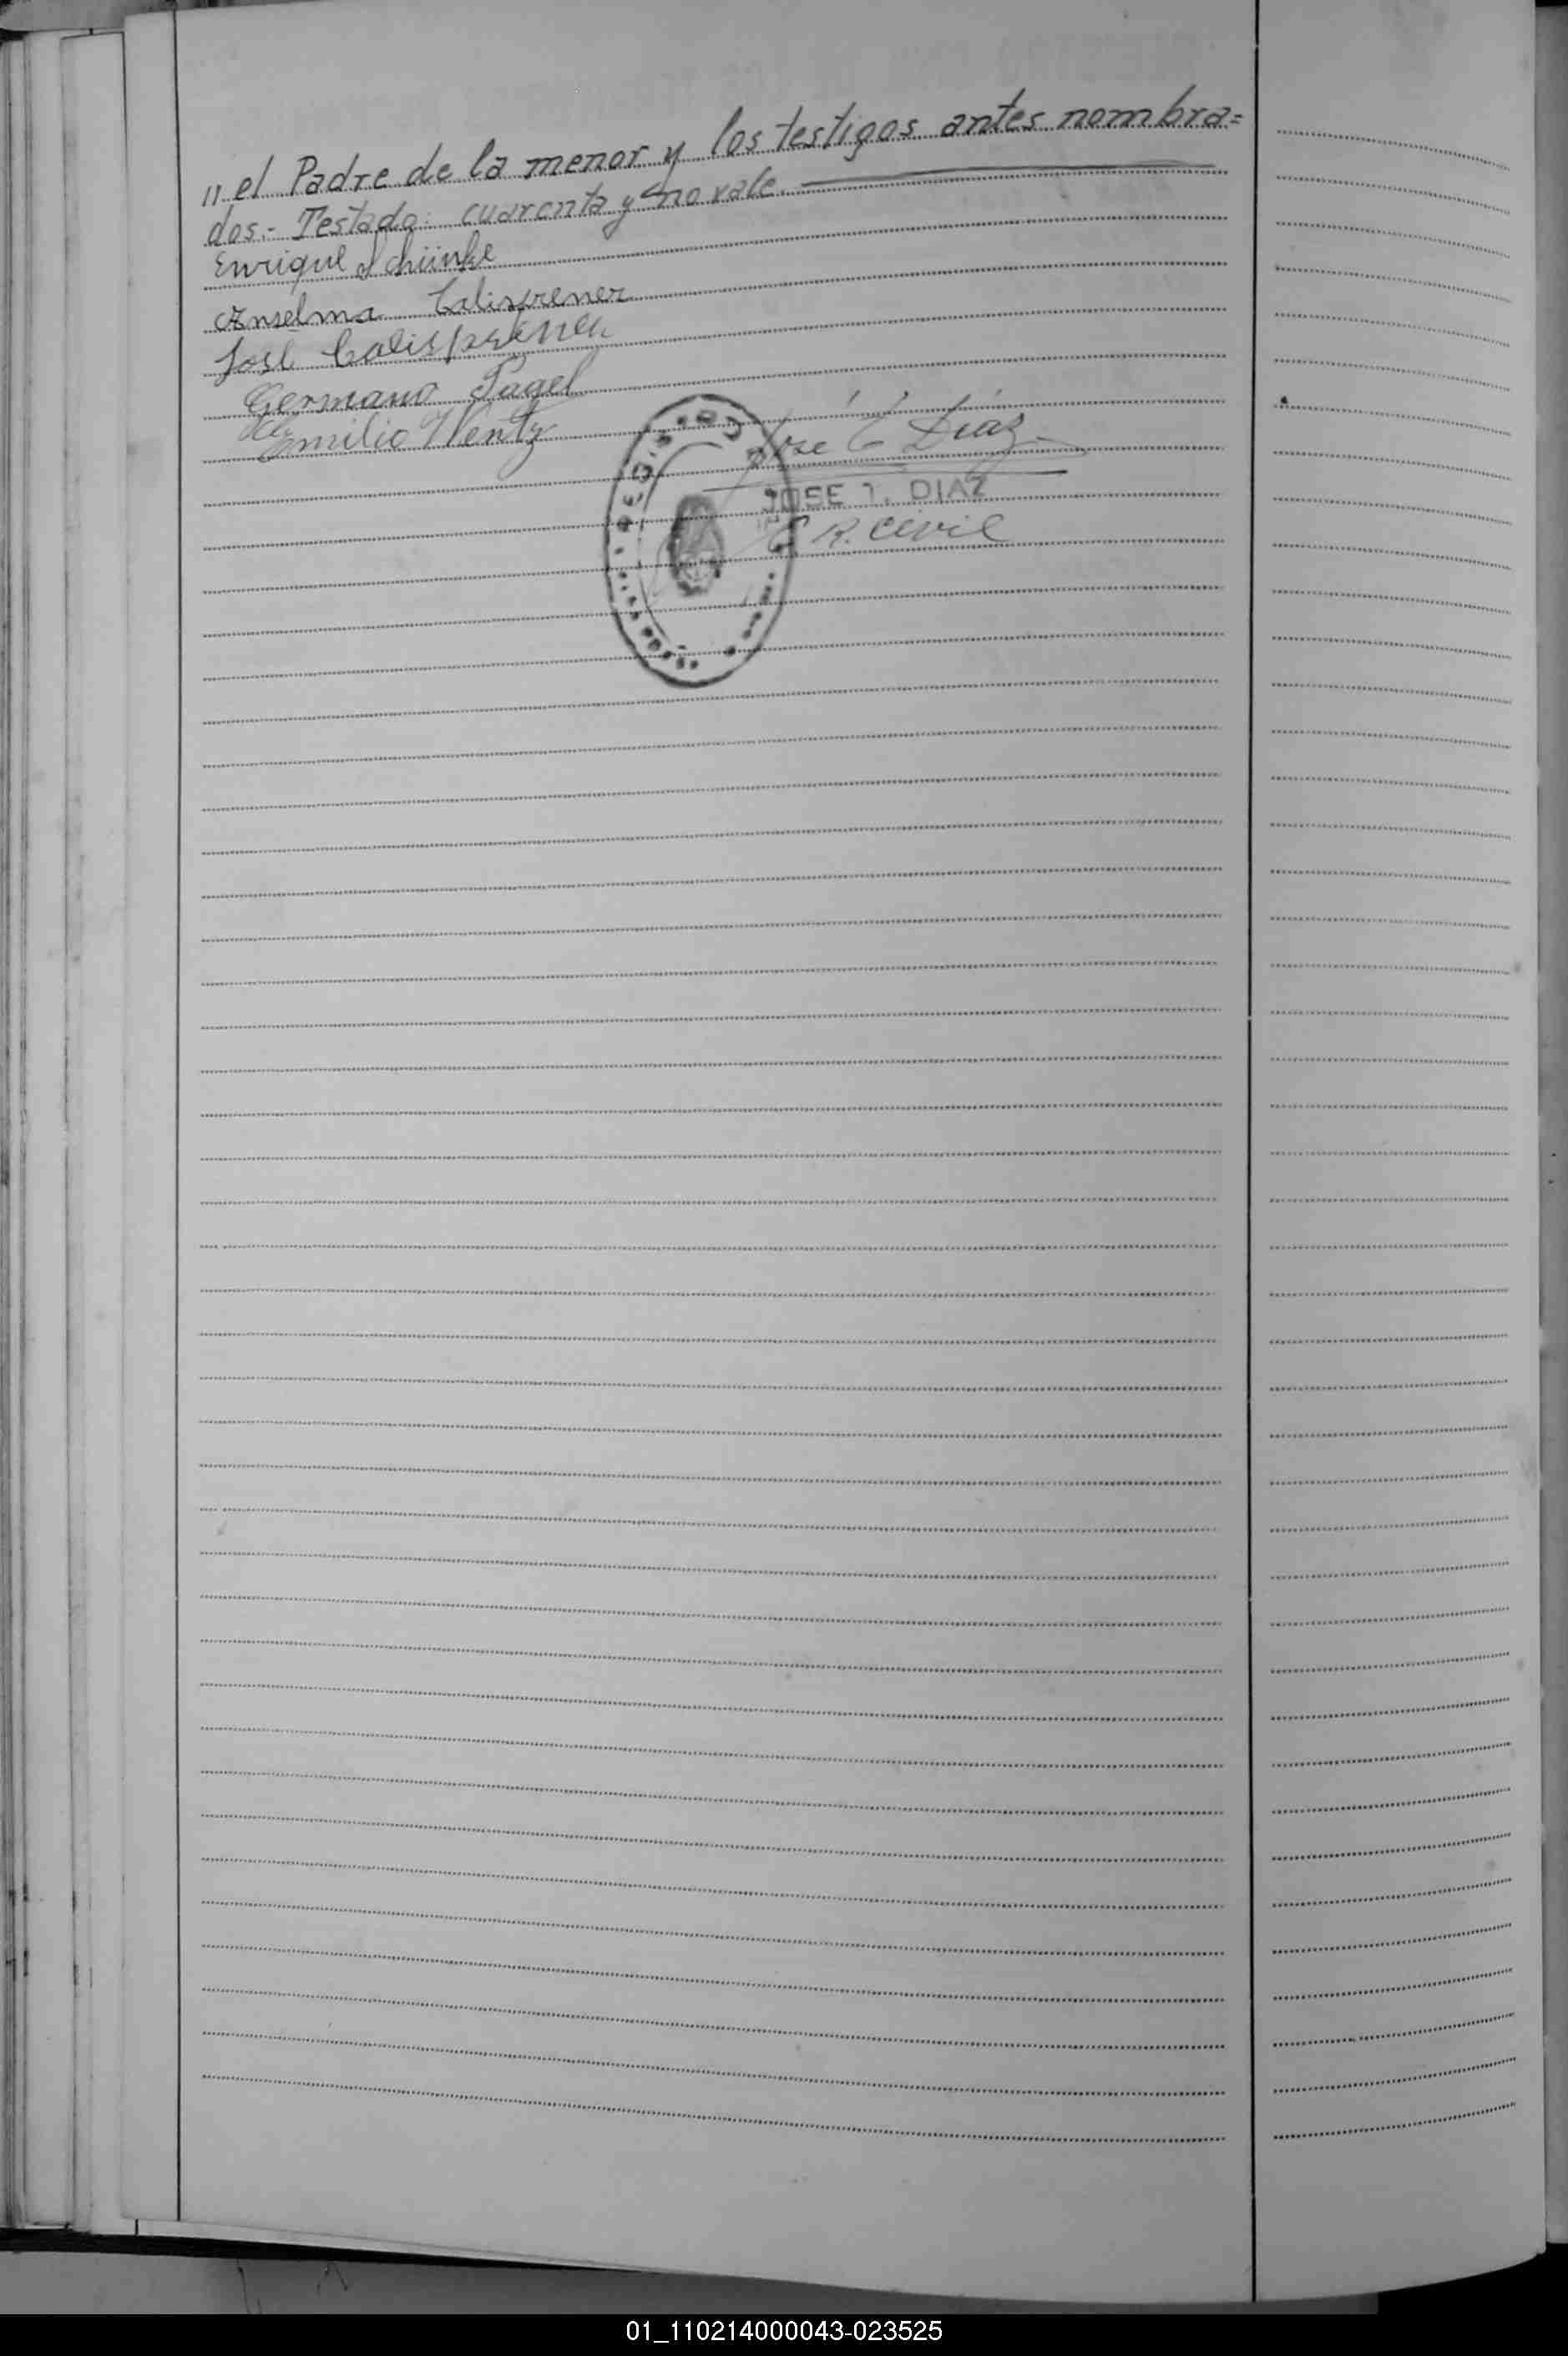 "el Padre de la menor y los testigos antes nombra=
dos.- Testado: cuarenta y no vale.
Enrique Schünke
Anselma
José
Germano Pagel
Emilio Wentz
José Díaz
JOSE DIAZ
R. Civil
01_110214000043-023525